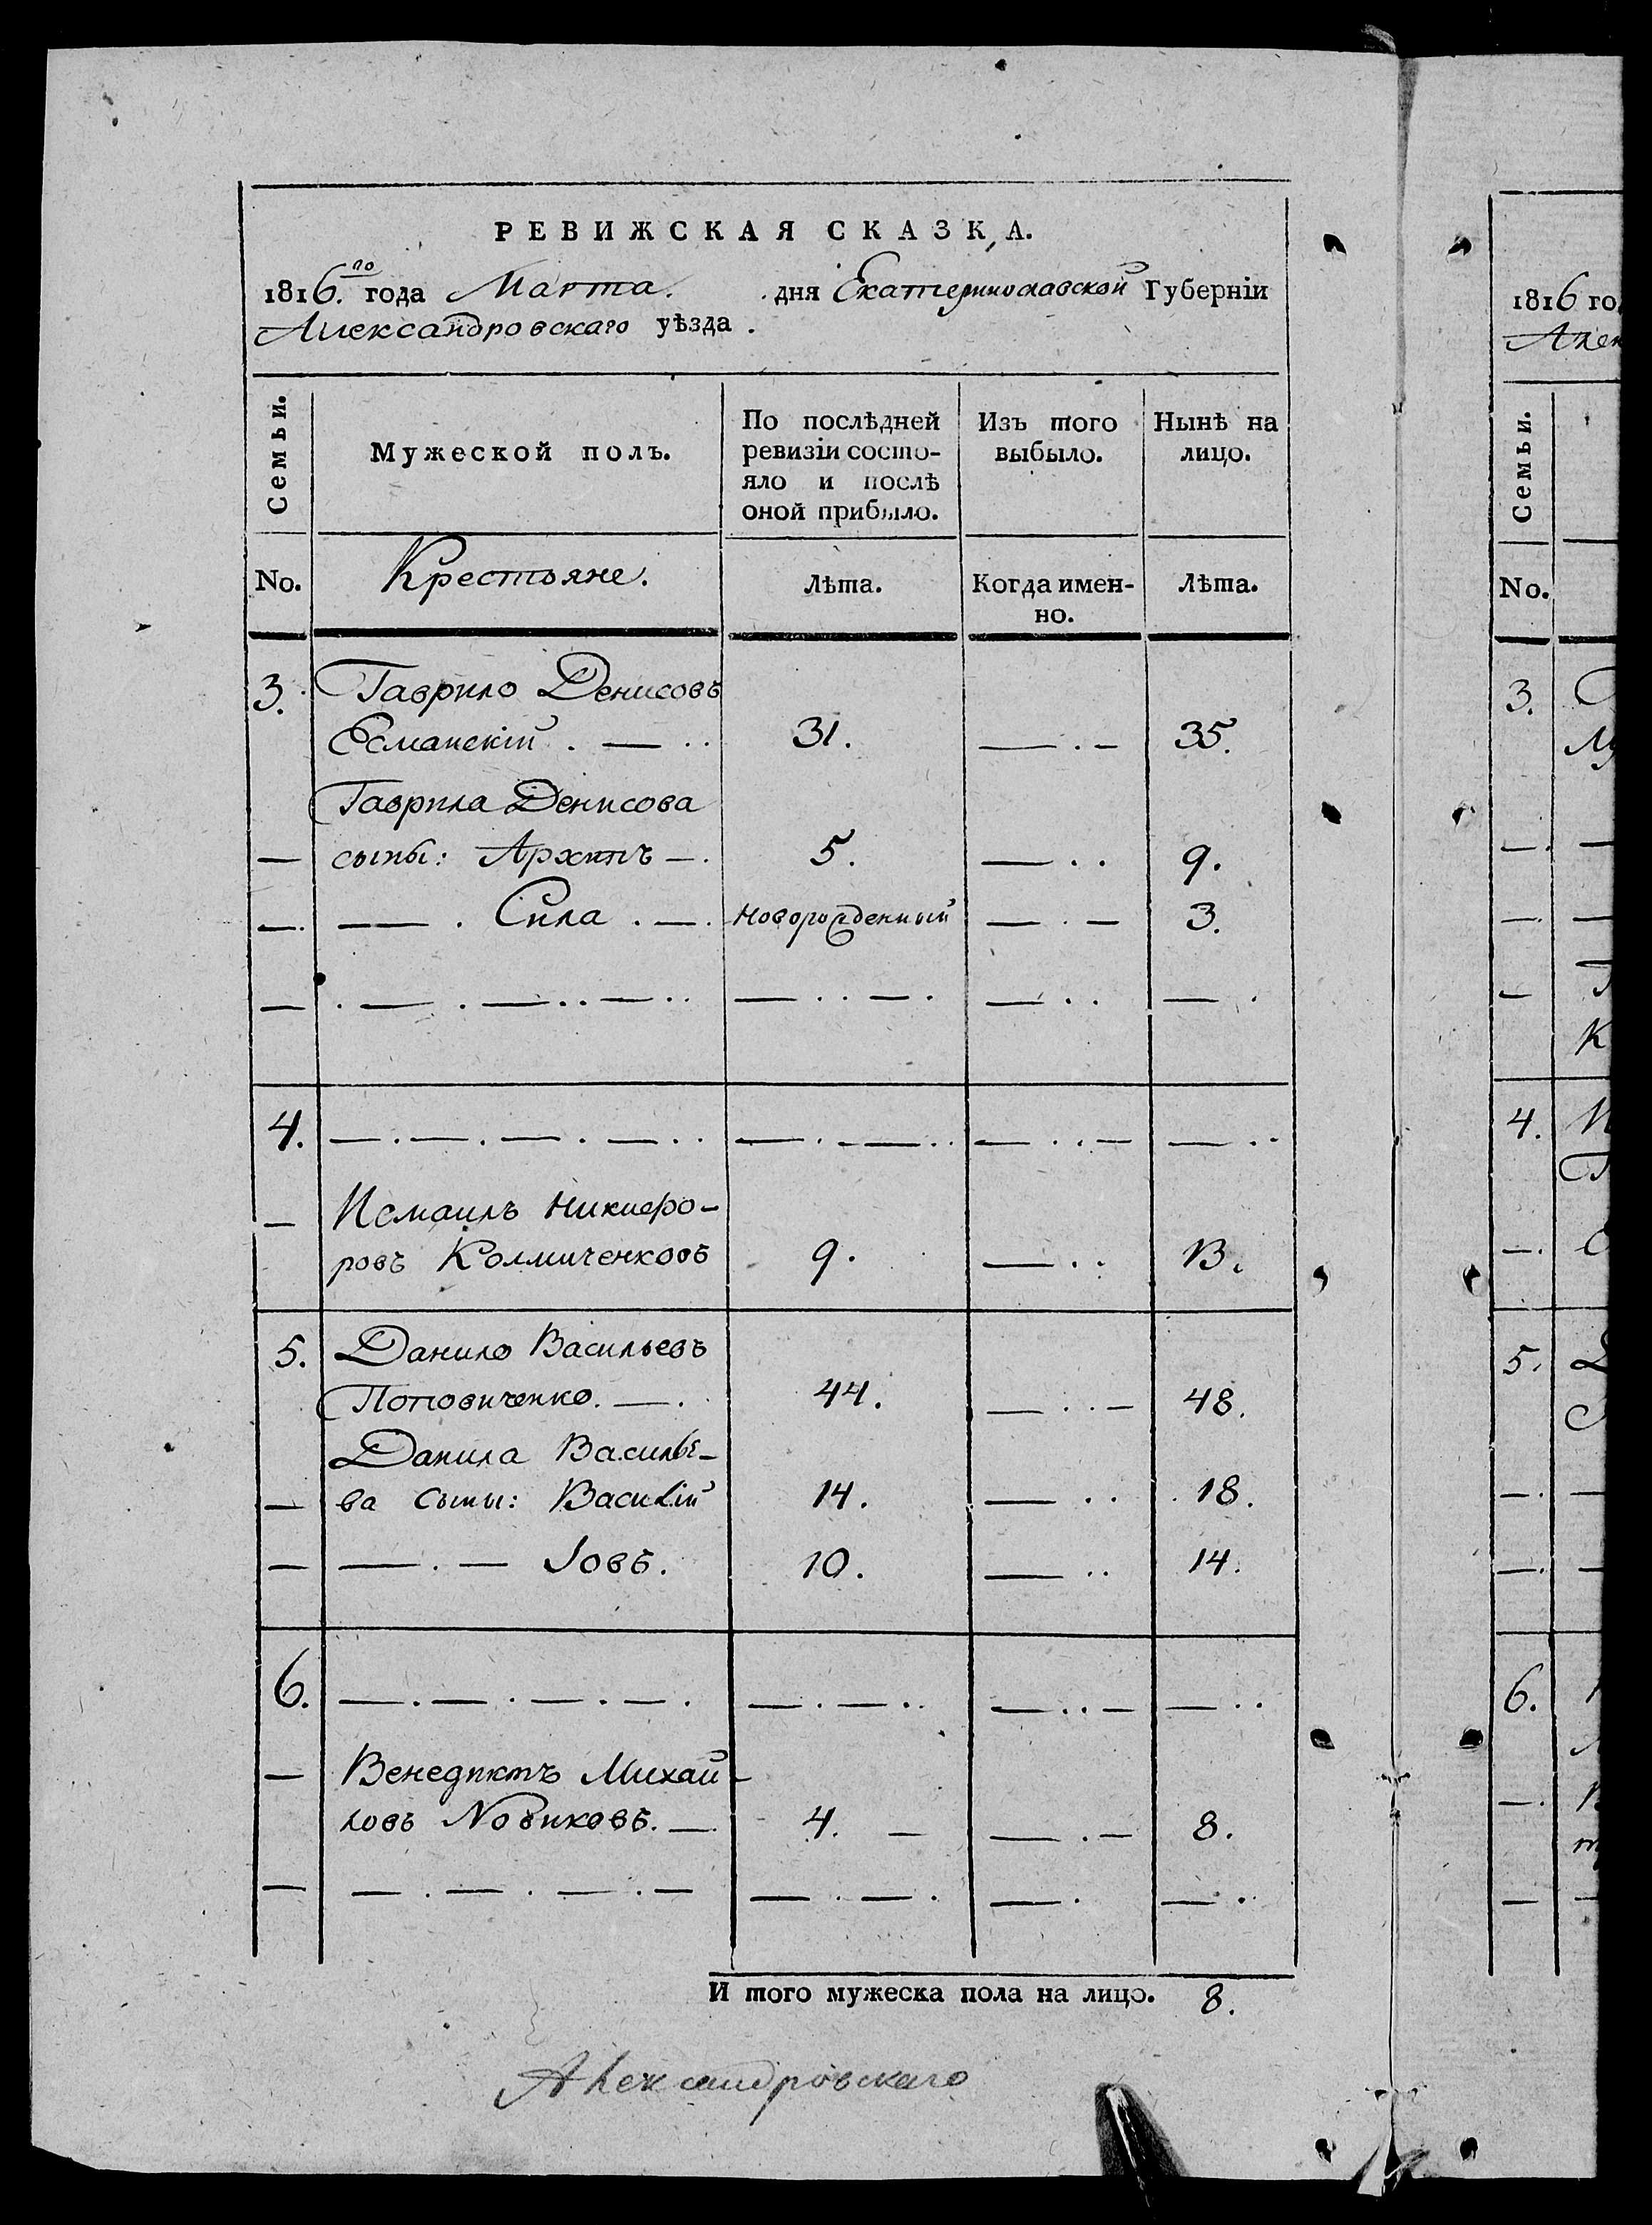 РЕВИЖСКАЯ СКАЗКА.
1816.го года Марта. дня Екатеринославской Губерніи
Александровскаго уѣзда.
Семьи.
Мужеской полъ.
По послѣдней ревизіи состо-
яло и послѣ
оной прибыло.
Изъ того
выбыло.
Нынѣ на
лицо.
No.
Крестьяне.
Лѣта.
Когда имен-
но.
Лѣта.
3. Гаврило Денисовъ
Есманскій. 31. 35.
Гаврила Денисова
сыны: Архипъ 5. 9.
Сила. новорожденный 3.
4.
Исмаилъ Никифо-
ровъ Колмиченковъ 9. 13.
5. Данило Васильевъ
Поповиченко. 44. 48.
Данила Василье-
ва сыны: Василій 14. 18.
Іовъ. 10. 14.
6.
Венедиктъ Михай-
ловъ Новиковъ. 4. 8.
И того мужеска пола на лицо. 8.
Александровскаго
1816 го
Алек
Семьи.
No.
3.
4.
5.
6.